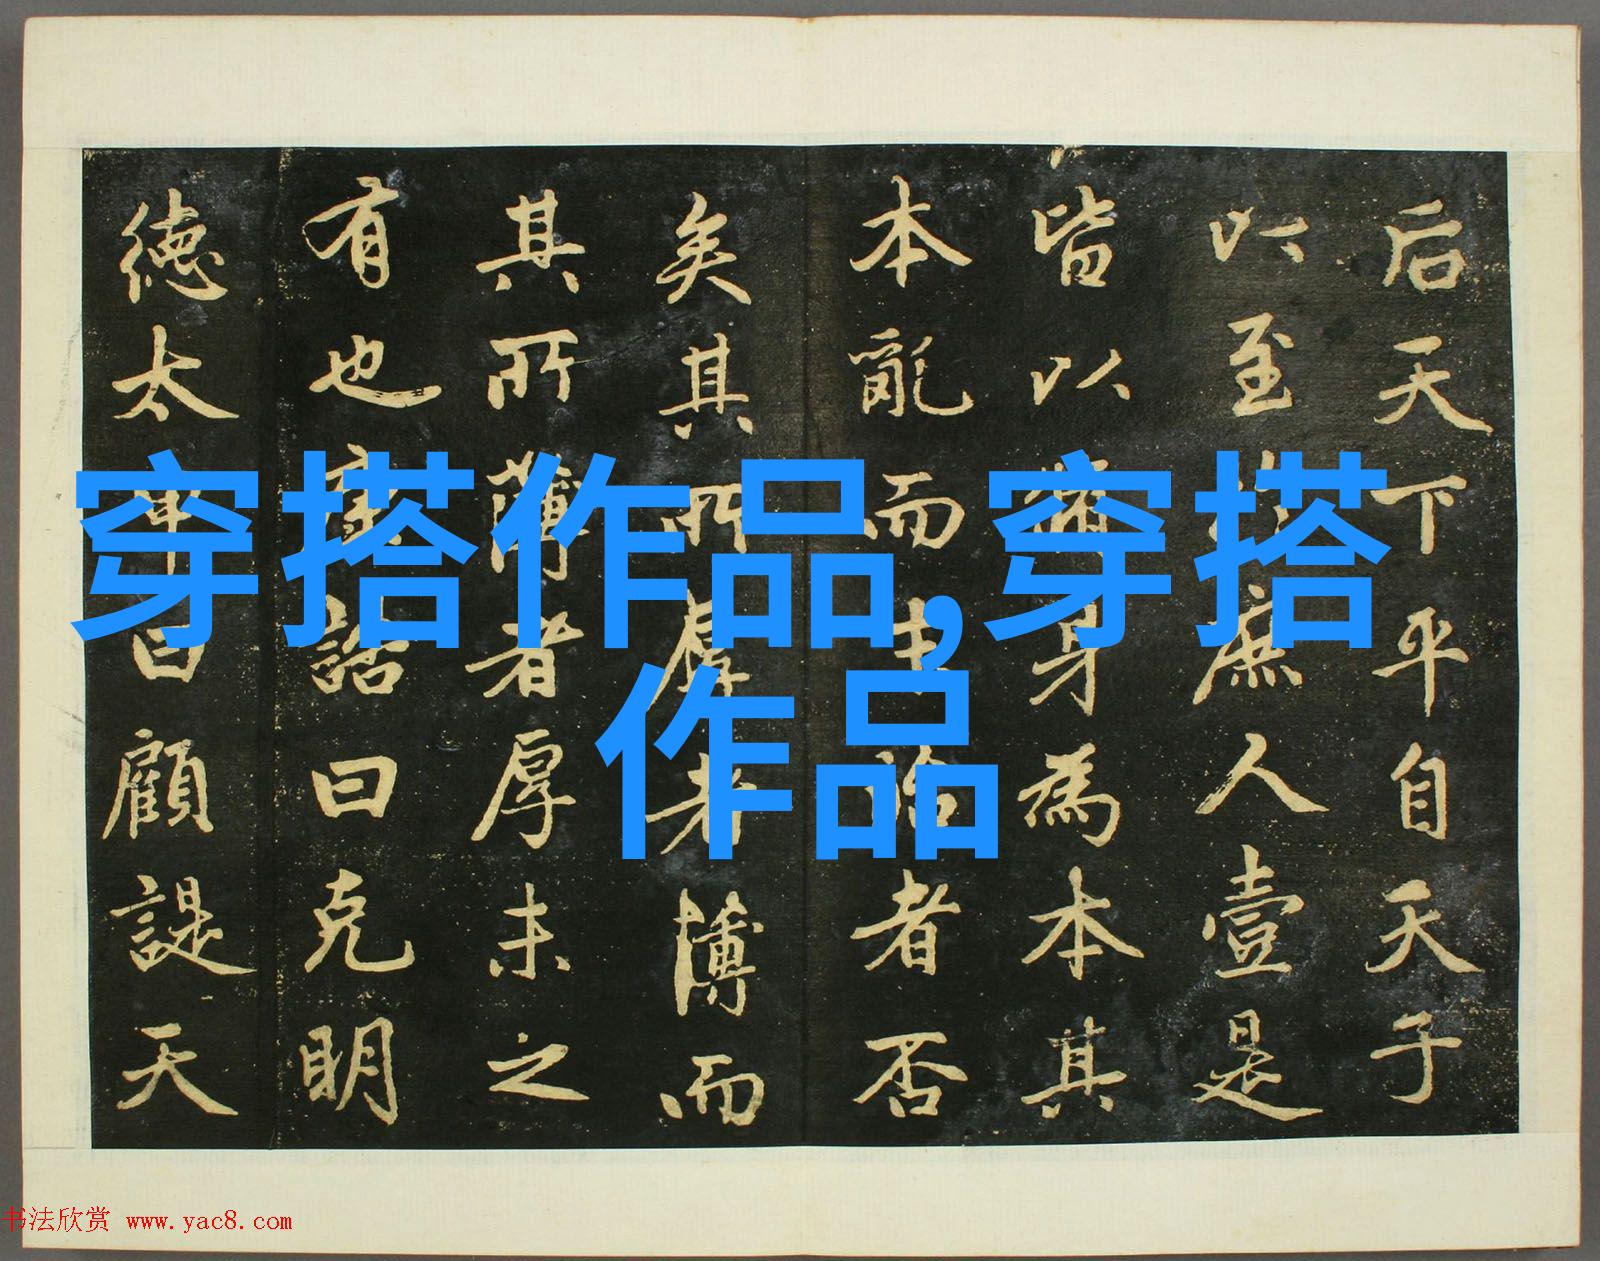 后天下平自天子
以至於庶人壹是
皆以脩身為本其
本亂而末治者否
矣其所厚者薄而
其所薄者厚未之
有也康誥曰克明
德太甲曰顧諟天
穿搭作品,穿搭
作品
书法欣赏 www.yac8.com